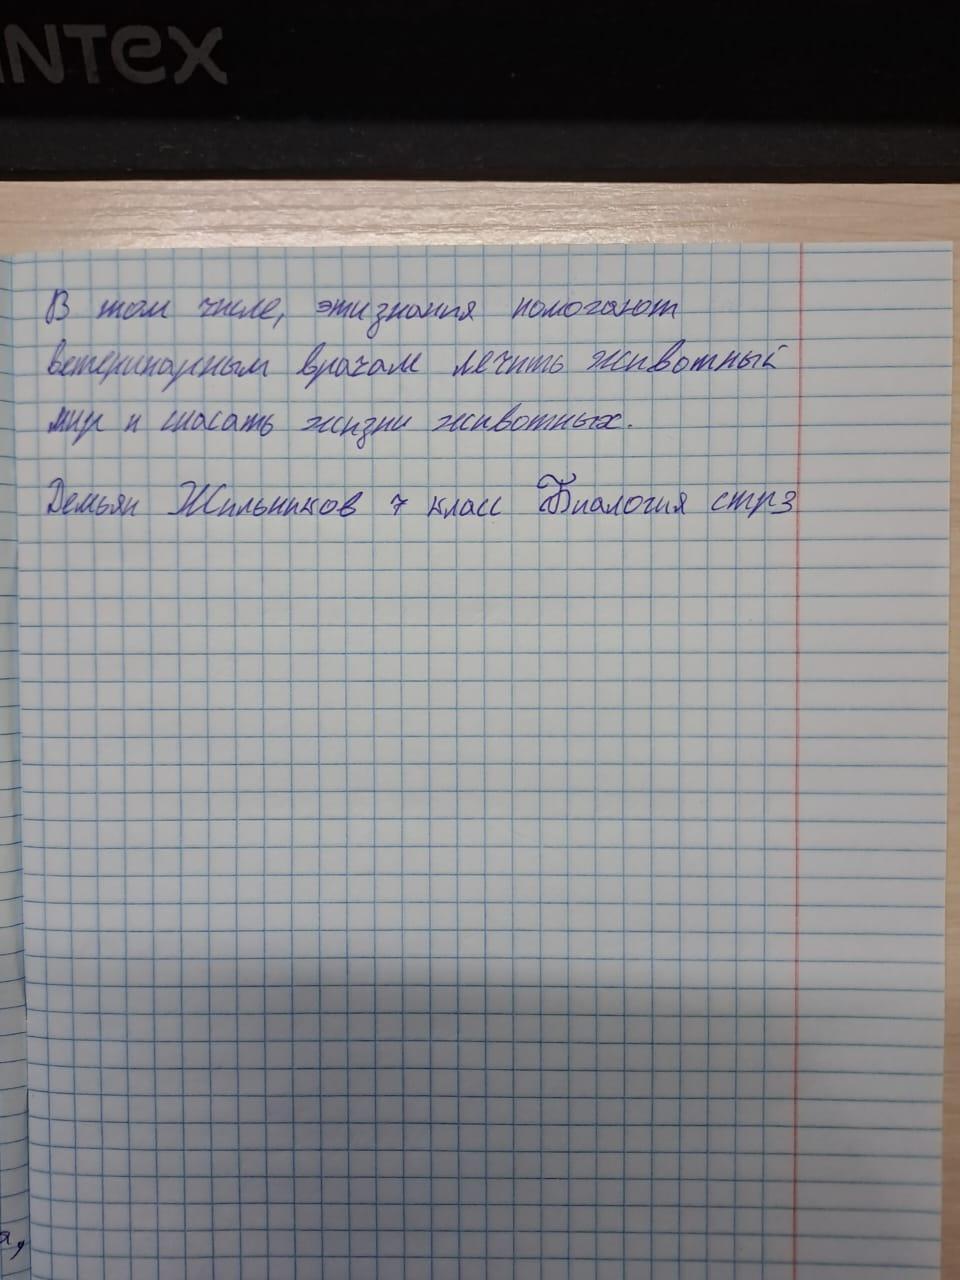 INTEX
В том числе, эти знания помогают
ветеринарным врачам лечить животный
мир и спасать жизни животных.
Демьян Жильников 7 класс Биалогия стр3
а,